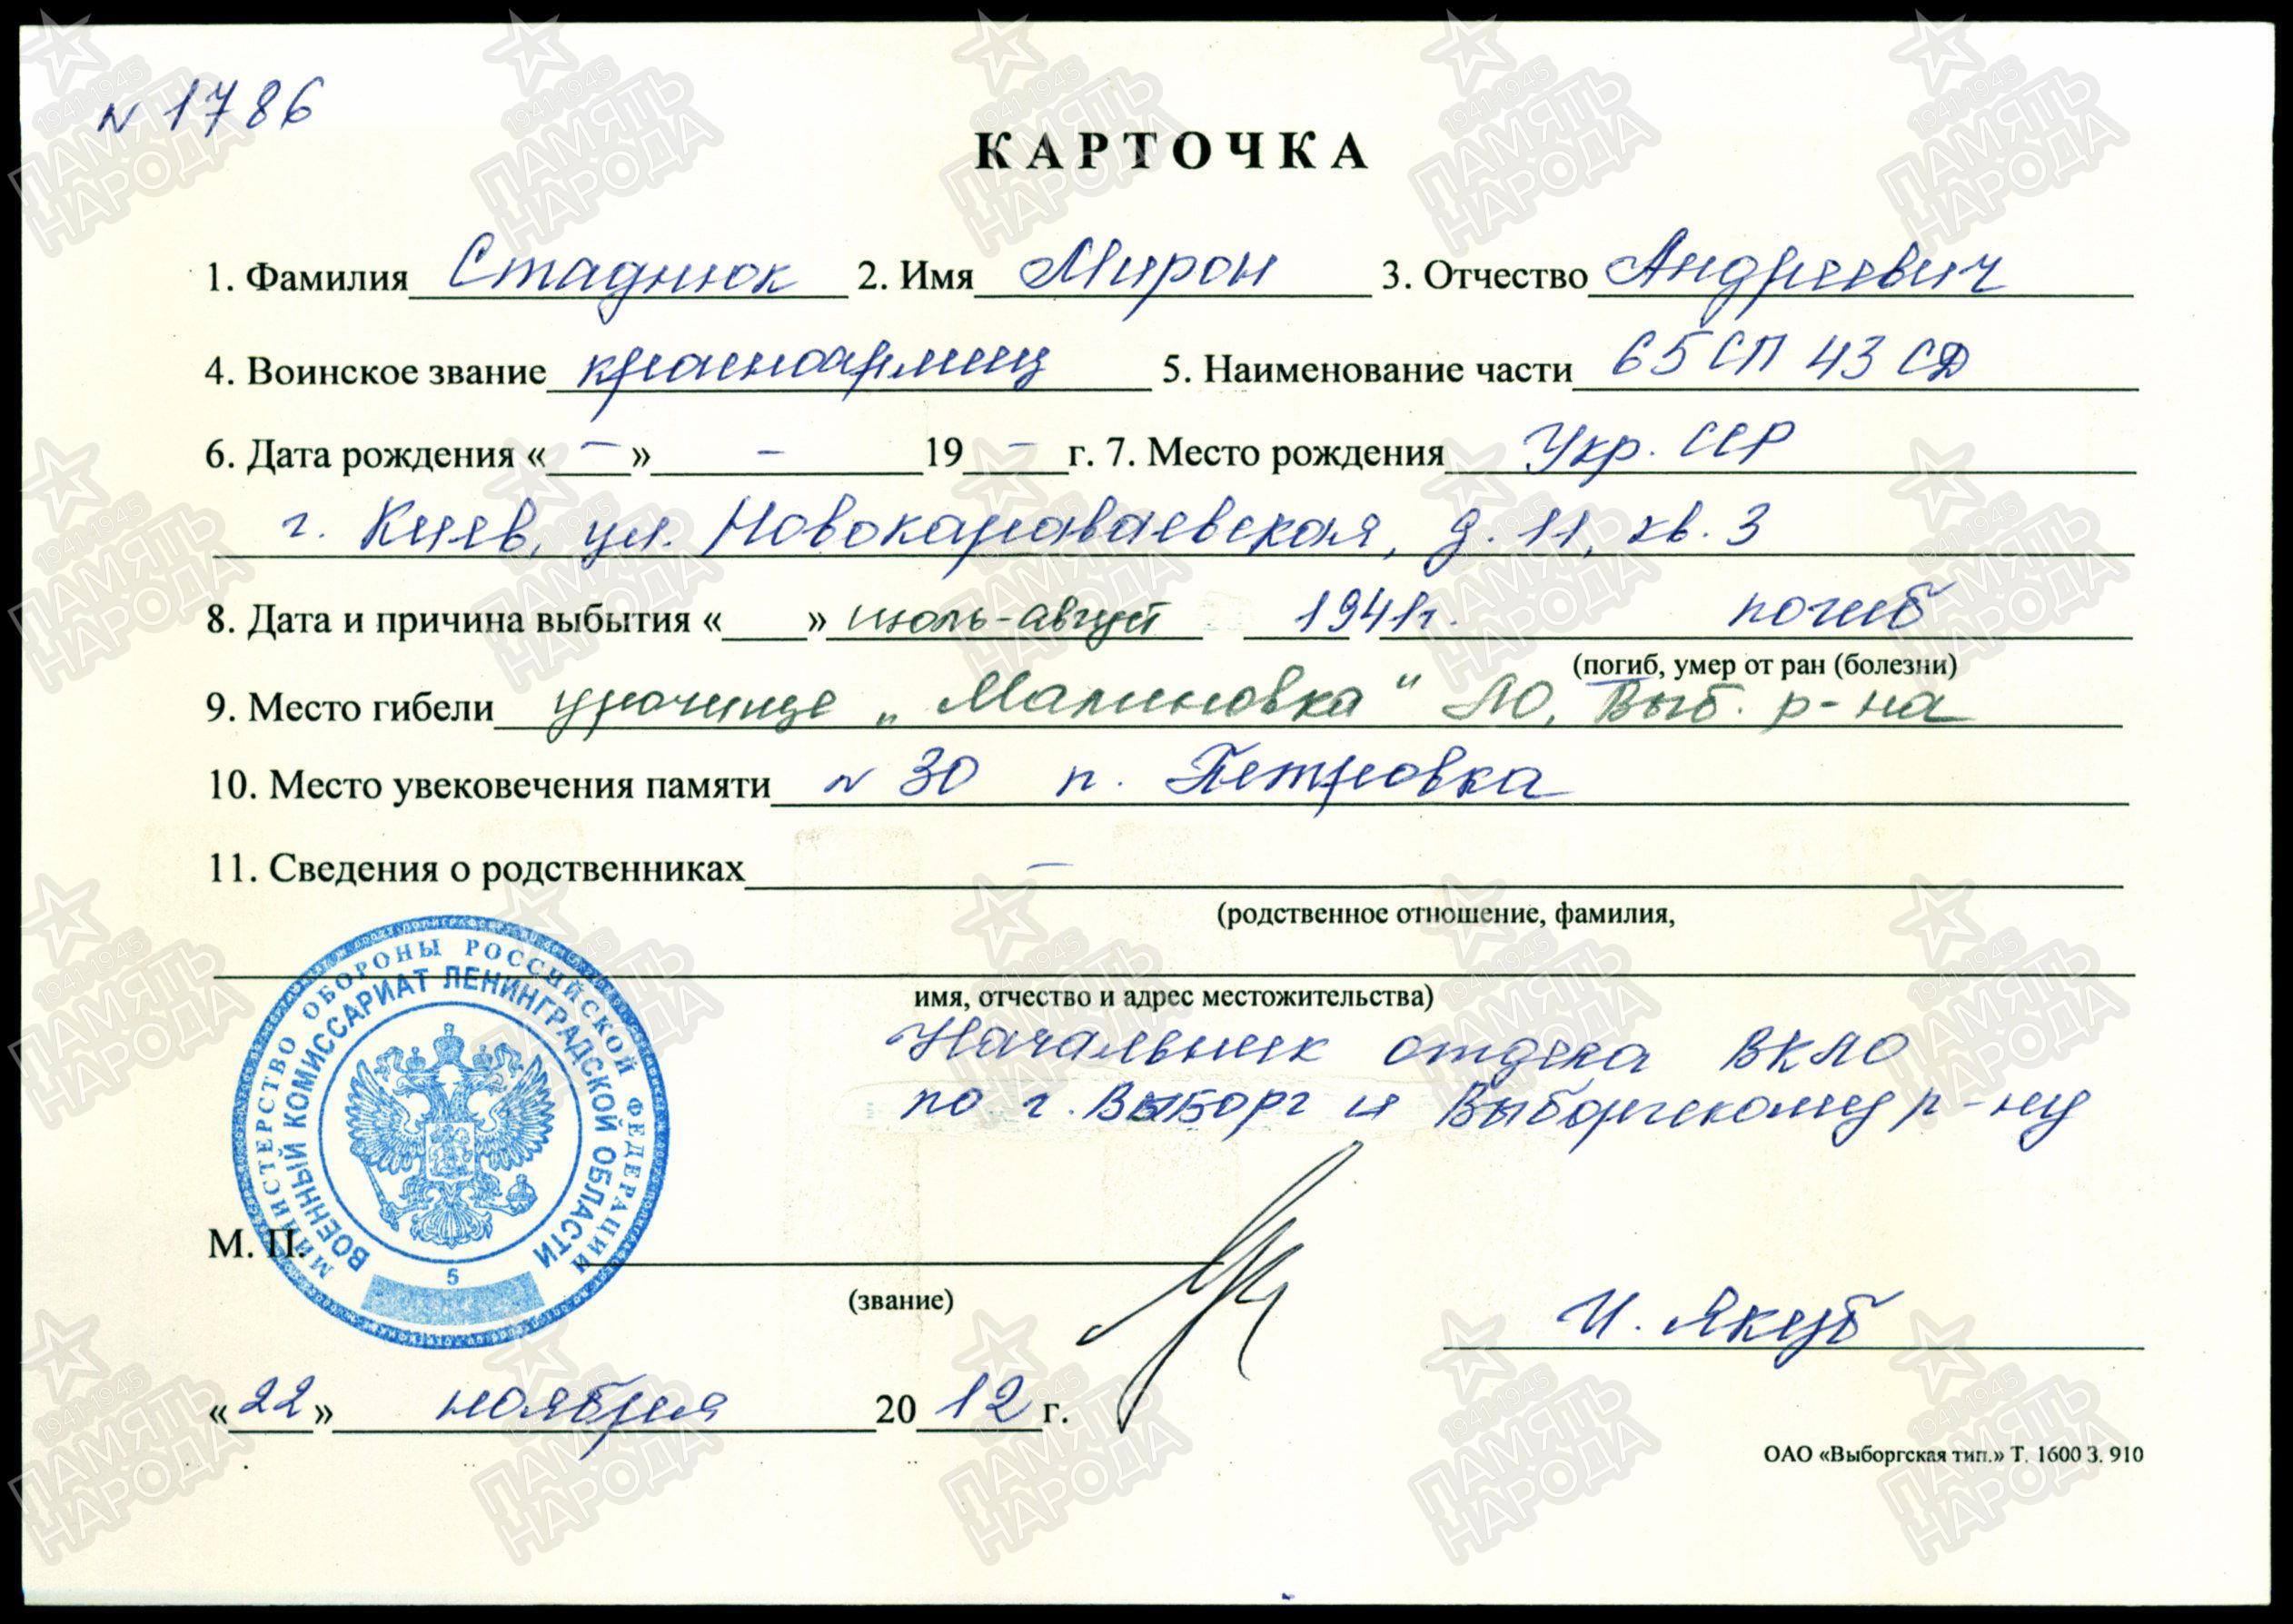 N 1786
КАРТОЧКА
1. Фамилия Стаднюк 2. Имя Мирон 3. Отчество Андреевич
4. Воинское звание красноармеец 5. Наименование части 65 СП 43 СД
6. Дата рождения « – » – 19 – г. 7. Место рождения Укр. ССР
г. Киев, ул. Новокараваевская, д. 11, кв. 3
8. Дата и причина выбытия « » июль-август 1941г. погиб
(погиб, умер от ран (болезни)
9. Место гибели урочище „Малиновка" ЛО, Выб. р-на
10. Место увековечения памяти N 30 п. Петровка
11. Сведения о родственниках –
(родственное отношение, фамилия,
имя, отчество и адрес местожительства)
Начальник отдела ВКЛО
по г. Выборг и Выборгскому р-ну
МИНИСТЕРСТВО ОБОРОНЫ РОССИЙСКОЙ ФЕДЕРАЦИИ
ВОЕННЫЙ КОМИССАРИАТ ЛЕНИНГРАДСКОЙ ОБЛАСТИ
5
М. П.
(звание)
И. Якуб
«22» ноября 20 12 г.
ОАО «Выборгская тип.» Т. 1600 З. 910
1941-1945
ПАМЯТЬ
НАРОДА